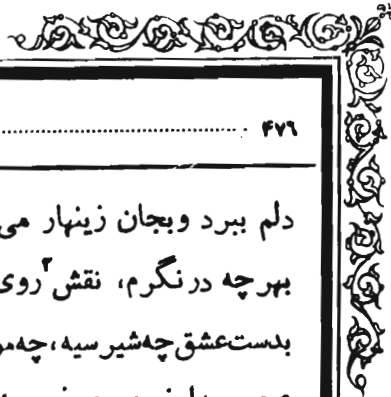 ۴۷۶
دلم ببرد و بجان زینهار می
بهر چه در نگرم، نقش۲ روی
بدست عشق چه شیر سیه، چه مو